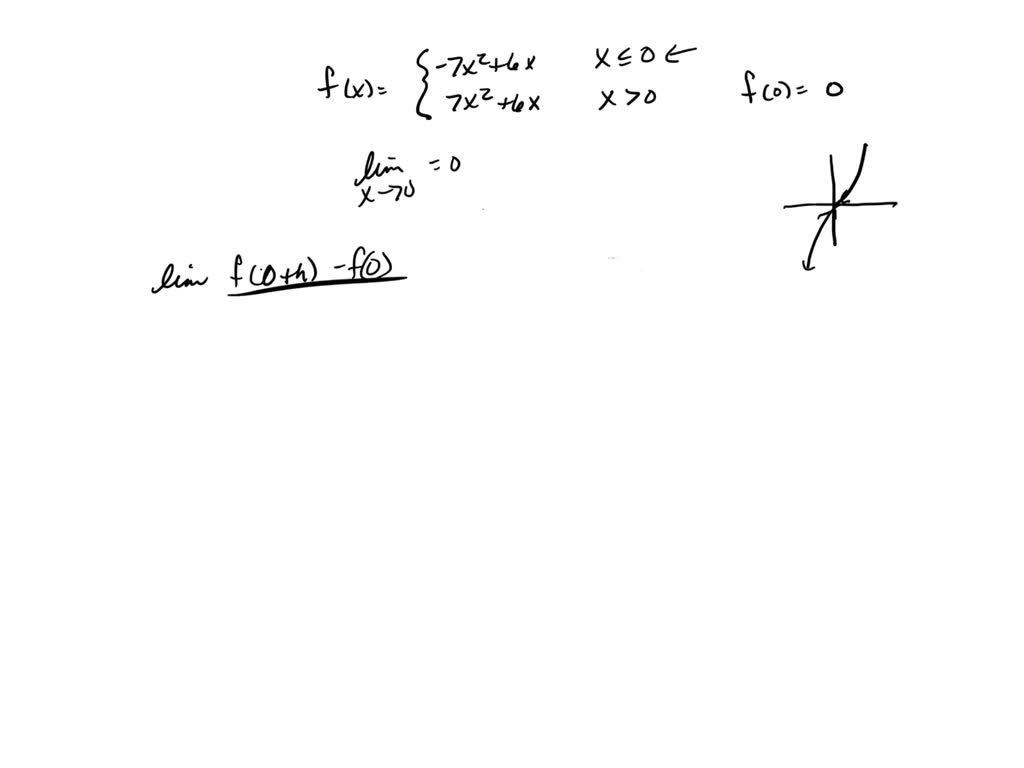 f(x) = { -7x²+6x    x ≤ 0 ←
7x²+6x    x > 0    f(0) = 0
lim = 0
x→0
lim f(0+h) - f(0)